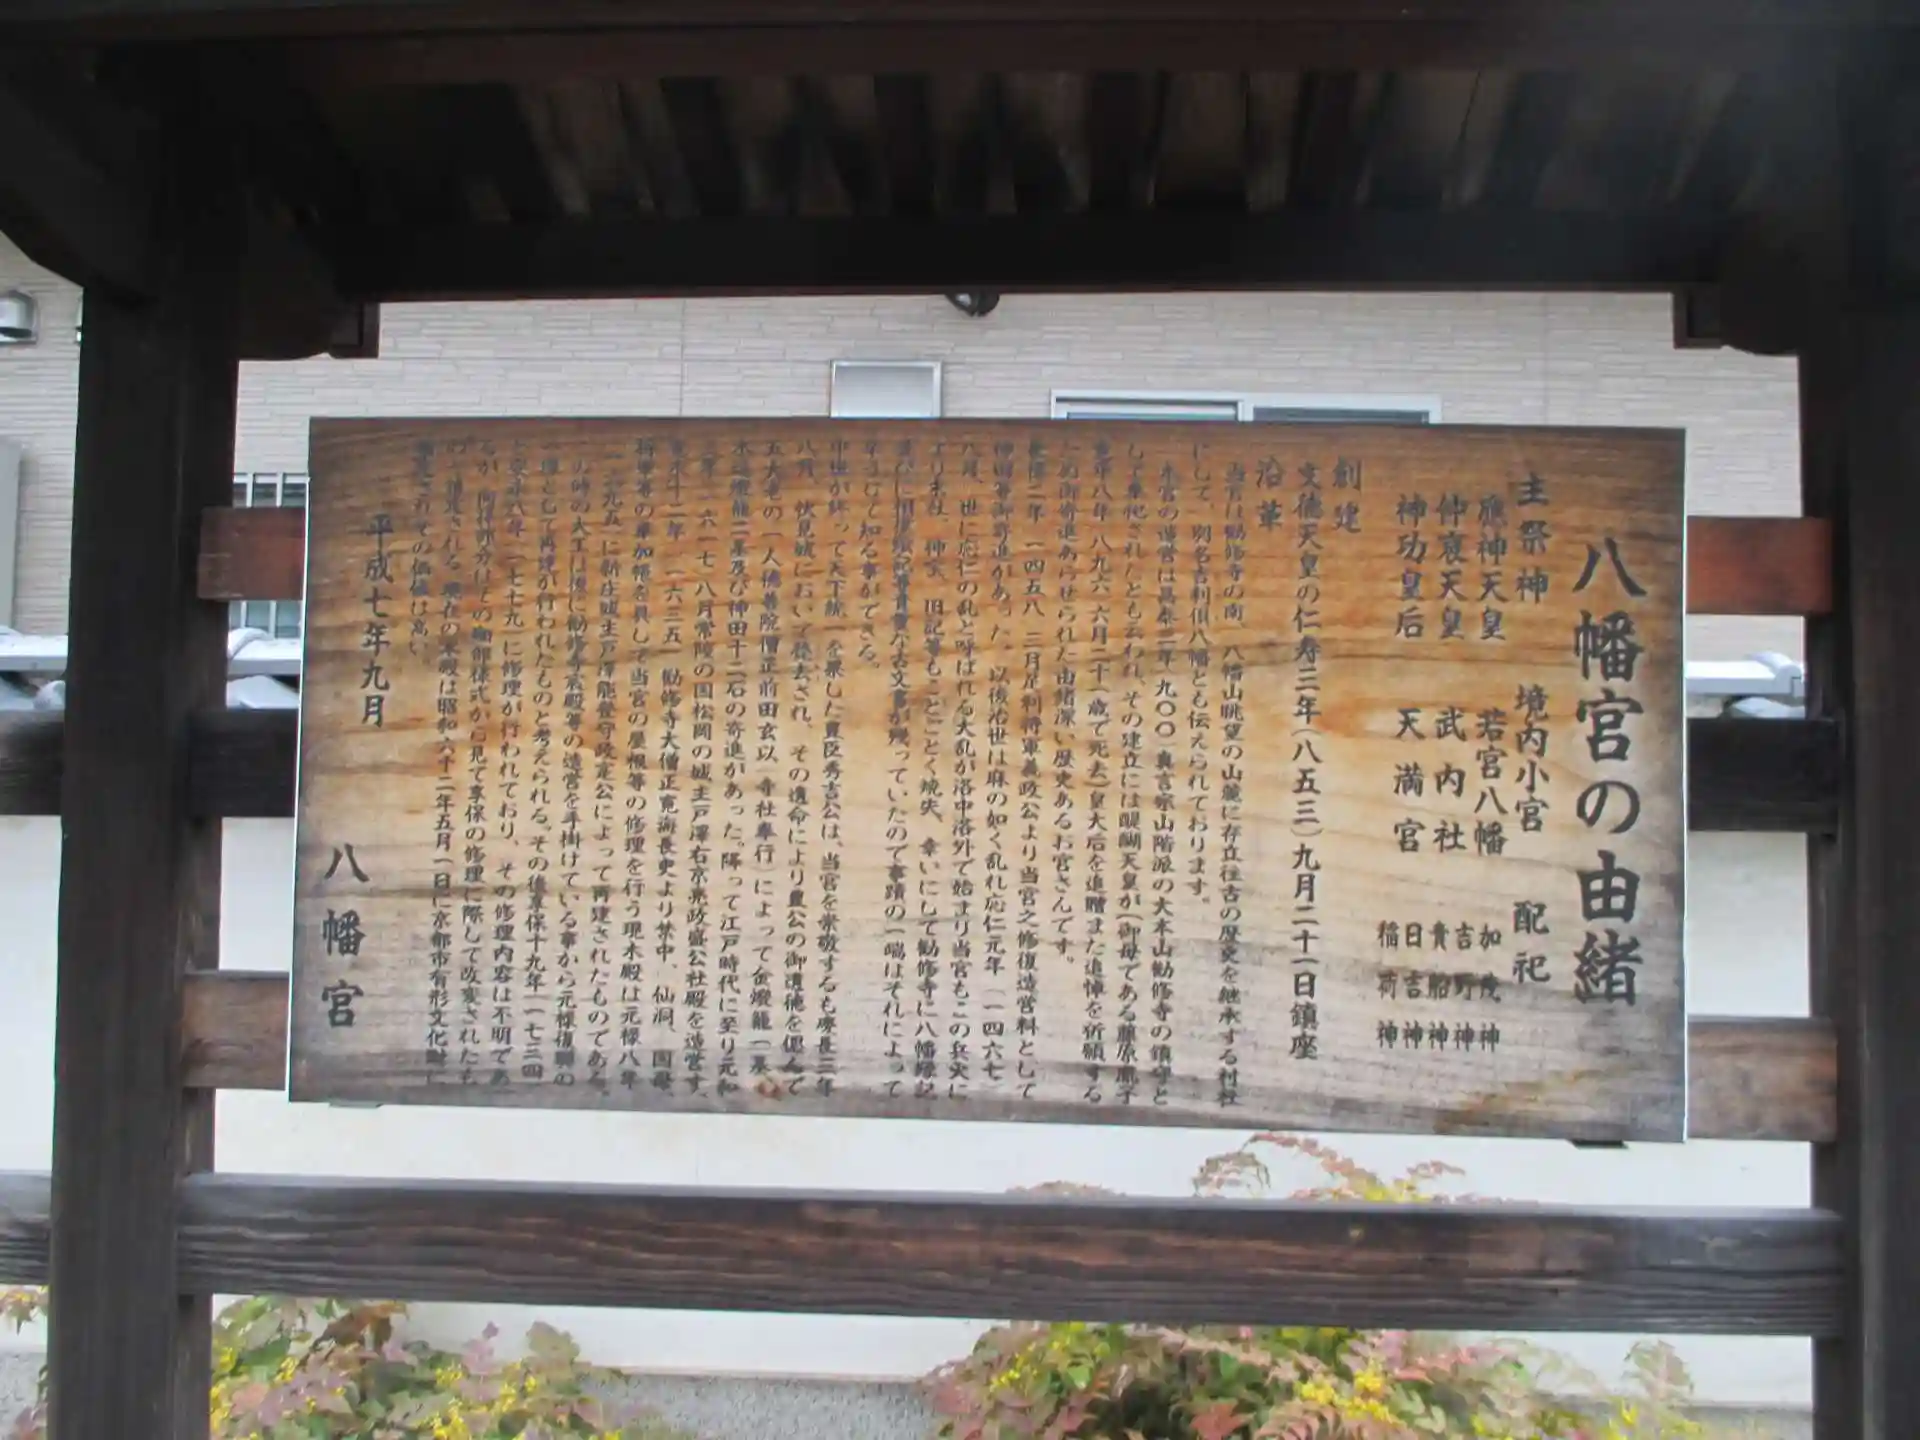 八幡宮の由緒
主祭神　境内小宮　配祀
應神天皇　若宮八幡　加茂神
吉野神
仲哀天皇　武内社　貴船神
日吉神
神功皇后　天満宮　稲荷神
創建
文徳天皇の仁寿三年(八五三)九月二十一日鎮座
沿革
当宮は勧修寺の南、八幡山眺望の山麓に存立往古の歴史を継承する村社
にして、別名吉利倶八幡とも伝えられております。
本宮の造営は昌泰三年(九〇〇)真言宗山階派の大本山勧修寺の鎮守と
して奉祀されたとも云われ、その建立には醍醐天皇が(御母である藤原胤子
寛平八年(八九六)六月二十一歳で死去)皇大后を追贈また追悼を祈願する
ため御寄進あらせられた由緒深い歴史あるお宮さんです。
長禄二年(一四五八)三月足利将軍義政公より当宮之修復造営料として
神田等御寄進があった。以後治世は麻の如く乱れ応仁元年(一四六七)
八月、世に応仁の乱と呼ばれる大乱が洛中洛外で始まり当宮もこの兵火に
より末社、神宝、旧記等もことごとく焼失、幸いにして勧修寺に八幡縁記
並びに相撲絵記等貴重な古文書が残っていたので事蹟の一端はそれによって
辛うじて知る事ができる。
中世が終って天下統一を果した豊臣秀吉公は、当宮を崇敬するも慶長三年
八月、伏見城において薨去され、その遺命により豊公の御遺徳を偲んで
五大老の一人徳善院僧正前田玄以(寺社奉行)によって金燈籠一基、
木造燈籠二基及び神田十二石の寄進があった。降って江戸時代に至り元和
三年(一六一七)八月常陸の国松岡の城主戸澤右京亮政盛公社殿を造営す。
寛永十二年(一六三五)勧修寺大僧正寛海長史より禁中、仙洞、国母、
将軍等の奉加帳を具して当宮の屋根等の修理を行う現本殿は元禄八年
(一六九五)に新庄城主戸澤能登守政定公によって再建されたものである。
この時の大工は後に勧修寺宸殿等の造営を手掛けている事から元禄復興の
一環として再建が行われたものと考えられる。その後享保十九年(一七三四)
と安永八年(一七七九)に修理が行われており、その修理内容は不明であ
るが、向拝部分はその細部様式から見て享保の修理に際して改変されたも
のと推定される。現在の本殿は昭和六十二年五月一日に京都市有形文化財に
指定されその価値は高い。
平成七年九月
八幡宮